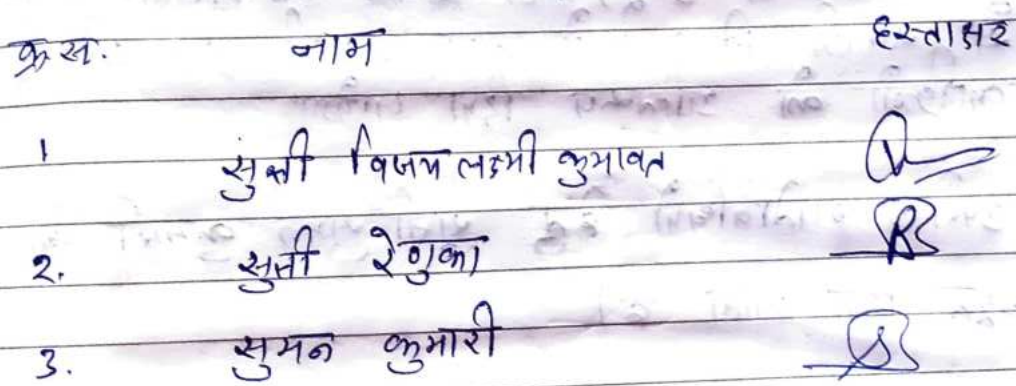 क्र.स. नाम हस्ताक्षर
1 सुश्री विजय लक्ष्मी कुमावत
2. सुश्री रेणुका
3. सुमन कुमारी